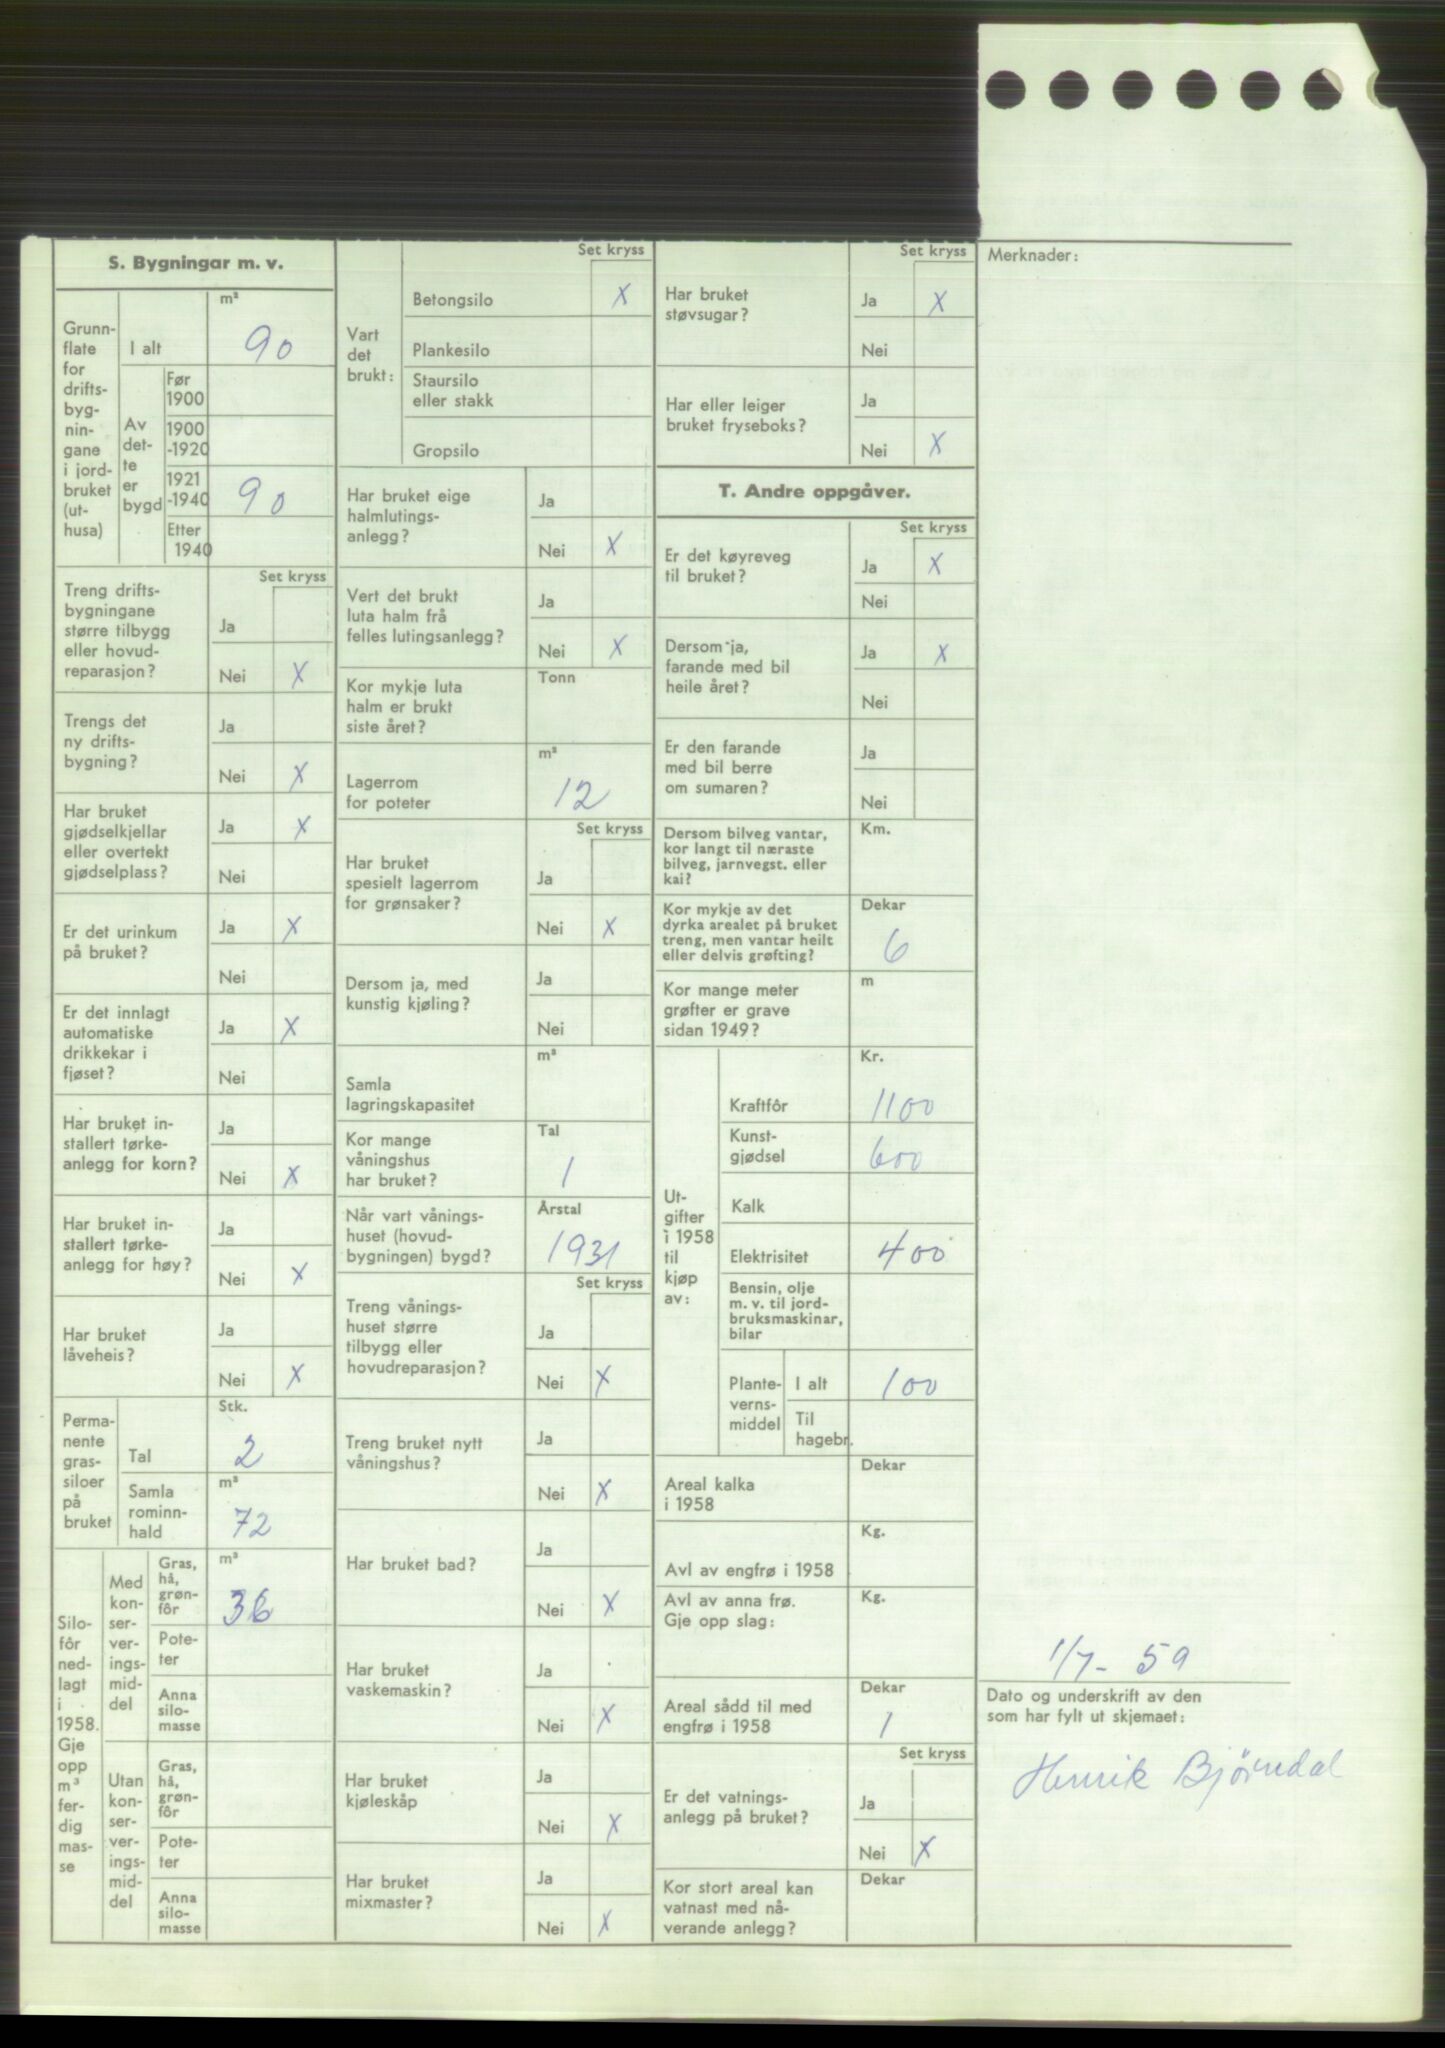 S. Bygningar m. v.
Grunn-
flate
for
drifts-
byg-
nin-
gane
i jord-
bruket
(ut-
husa)
m²
I alt
90
Av
det-
te
er
bygd
Før
1900
1900
-1920
1921
-1940
90
Etter
1940
Set kryss
Treng drifts-
bygningane
større tilbygg
eller hovud-
reparasjon?
Ja
Nei X
Trengs det
ny drifts-
bygning?
Ja
Nei X
Har bruket
gjødselkjellar
eller overtekt
gjødselplass?
Ja X
Nei
Er det urinkum
på bruket?
Ja X
Nei
Er det innlagt
automatiske
drikkekar i
fjøset?
Ja X
Nei
Har bruket in-
stallert tørke-
anlegg for korn?
Ja
Nei X
Har bruket in-
stallert tørke-
anlegg for høy?
Ja
Nei X
Har bruket
låveheis?
Ja
Nei X
Perma-
nente
gras-
siloer
på
bruket
Stk.
Tal
2
Samla
rominn-
hald
m³
72
Silo-
fôr
ned-
lagt
i
1958.
Gje
opp
m³
fer-
dig
mas-
se
Med
kon-
ser-
ver-
ings-
mid-
del
Gras,
hå,
grøn-
fôr
m³
36
Pote-
ter
Anna
silo-
masse
Utan
kon-
ser-
ver-
ings-
mid-
del
Gras,
hå,
grøn-
fôr
Pote-
ter
Anna
silo-
masse
Set kryss
Vart
det
brukt:
Betongsilo X
Plankesilo
Staursilo
eller stakk
Gropsilo
Har bruket eige
halmlutings-
anlegg?
Ja
Nei X
Vert det brukt
luta halm frå
felles lutingsanlegg?
Ja
Nei X
Kor mykje luta
halm er brukt
siste året?
Tonn
Lagerrom
for poteter
m³
12
Set kryss
Har bruket
spesielt lagerrom
for grønsaker?
Ja
Nei X
Dersom ja, med
kunstig kjøling?
Ja
Nei
Samla
lagringskapasitet
m³
Kor mange
våningshus
har bruket?
Tal
1
Når vart vånings-
huset (hovud-
bygningen) bygd?
Årstal
1931
Set kryss
Treng vånings-
huset større
tilbygg eller
hovudreparasjon?
Ja
Nei X
Treng bruket nytt
våningshus?
Ja
Nei X
Har bruket bad?
Ja
Nei X
Har bruket
vaskemaskin?
Ja
Nei X
Har bruket
kjøleskåp
Ja
Nei X
Har bruket
mixmaster?
Ja
Nei X
Set kryss
Har bruket
støvsugar?
Ja X
Nei
Har eller leiger
bruket fryseboks?
Ja
Nei X
T. Andre oppgåver.
Set kryss
Er det køyreveg
til bruket?
Ja X
Nei
Dersom ja,
farande med bil
heile året?
Ja X
Nei
Er den farande
med bil berre
om sumaren?
Ja
Nei
Dersom bilveg vantar,
kor langt til næraste
bilveg, jarnvegst. eller
kai?
Km.
Kor mykje av det
dyrka arealet på bruket
treng, men vantar heilt
eller delvis grøfting?
Dekar
6
Kor mange meter
grøfter er grave
sidan 1949?
m
Ut-
gifter
i 1958
til
kjøp
av:
Kr.
Kraftfôr
1100
Kunst-
gjødsel
600
Kalk
Elektrisitet
400
Bensin, olje
m. v. til jord-
bruksmaskinar,
bilar
Plante-
verns-
middel
I alt
100
Til
hagebr.
Areal kalka
i 1958
Dekar
Avl av engfrø i 1958
Kg.
Avl av anna frø.
Gje opp slag:
Kg.
Areal sådd til med
engfrø i 1958
Dekar
1
Set kryss
Er det vatnings-
anlegg på bruket?
Ja
Nei X
Kor stort areal kan
vatnast med nå-
verande anlegg?
Dekar
Merknader:
1/7- 59
Dato og underskrift av den
som har fylt ut skjemaet:
Henrik Bjørndal